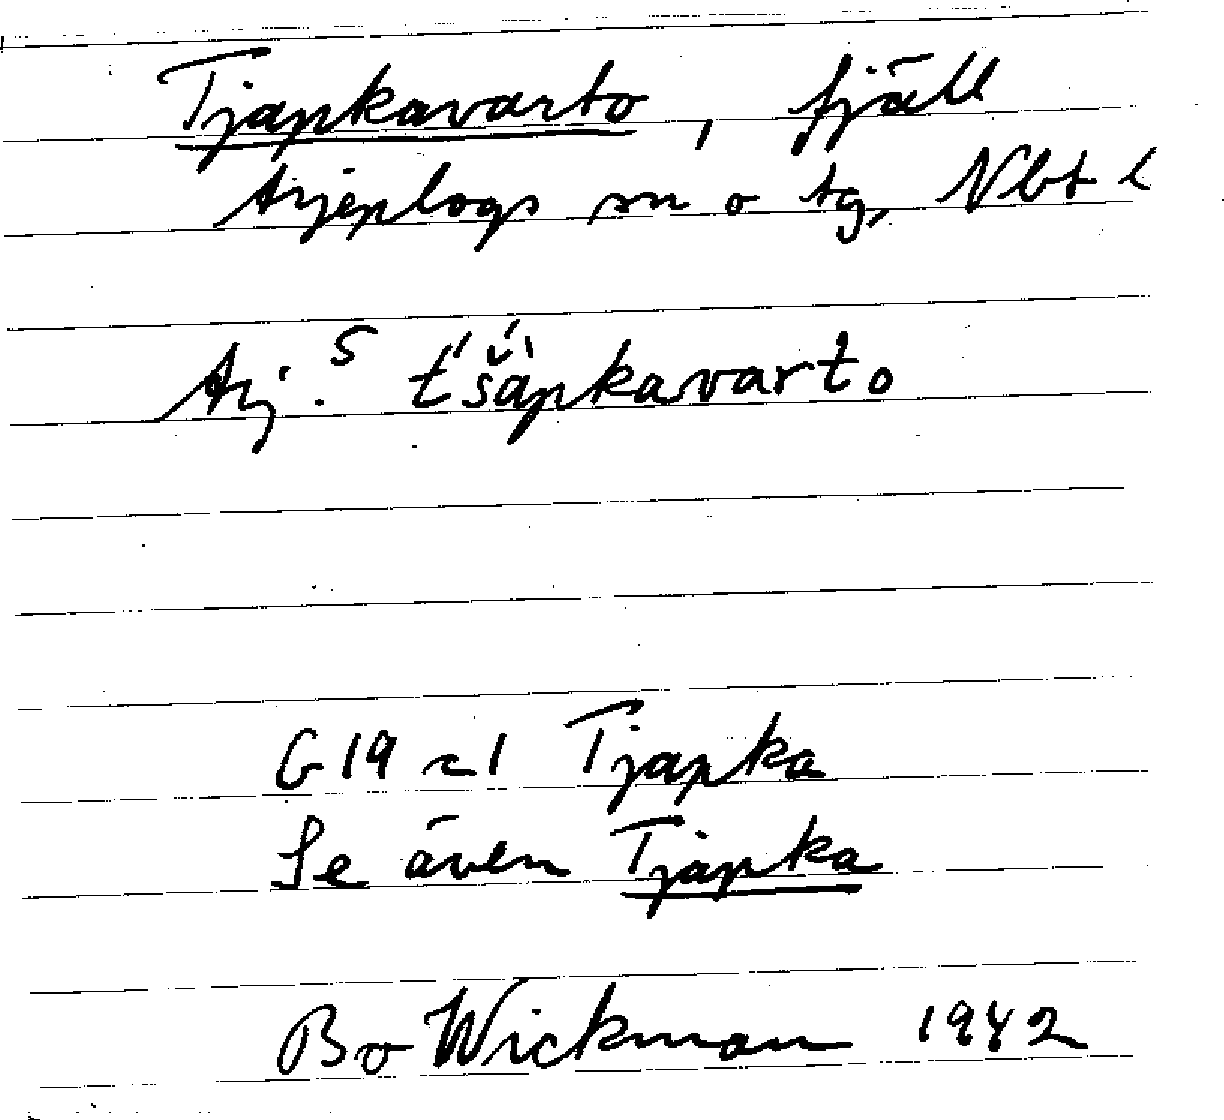 Tjapkavarto, fjäll
Arjeplogs sn o tg, Nbt l
Arj. S t́'šápkavarto
G 19 Tjapka
Se även Tjapka
Bo Wickman 1942